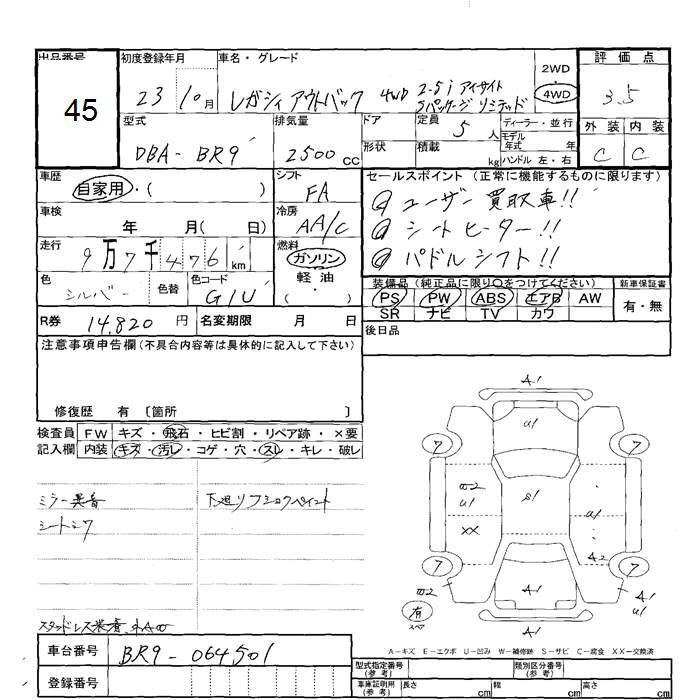 出品番号 初度登録年月 車名・グレード 2WD 評価点
45 23 10月 レガシィアウトバック 4WD 2.5i アイサイト Sパッケージ リミテッド 4WD 3.5
型式 排気量 ドア 定員 5人 ディーラー・並行 外装 内装
DBA-BR9 2500cc 形状 積載 kg モデル年式 年 C C
ハンドル 左・右
車歴 シフト セールスポイント (正常に機能するものに限ります)
自家用・( ) FA ユーザー買取車!!
車検 冷房 シートヒーター!!
年 月( 日) AA/C パドルシフト!!
走行 燃料
9万7千476km ガソリン
色 色替 色コード 軽油 装備品 (純正品に限り○をつけてください) 新車保証書
シルバー G1U ・( ) PS PW ABS エアB AW 有・無
SR ナビ TV カワ
R券 14,820円 名変期限 月 日 後日品
注意事項申告欄(不具合内容等は具体的に記入して下さい)
修復歴 有 〔箇所 〕
検査員 FW キズ・飛石・ヒビ割・リペア跡・×要
記入欄 内装 キズ・汚レ・コゲ・穴・スレ・キレ・破レ
ミラー異音 下廻リ
シートシワ
A1
U1
7 7
U1 S1 U1
XX A2
7 7
A1 A1
有 U1
A1
スタッドレス
A-キズ E-エクボ U-凹み W-補修跡 S-サビ C-腐食 XX-交換済
車台番号 BR9-064501
登録番号
型式指定番号(参考) 類別区分番号(参考)
車庫証明用(参考) 長さ cm 幅 cm 高さ cm